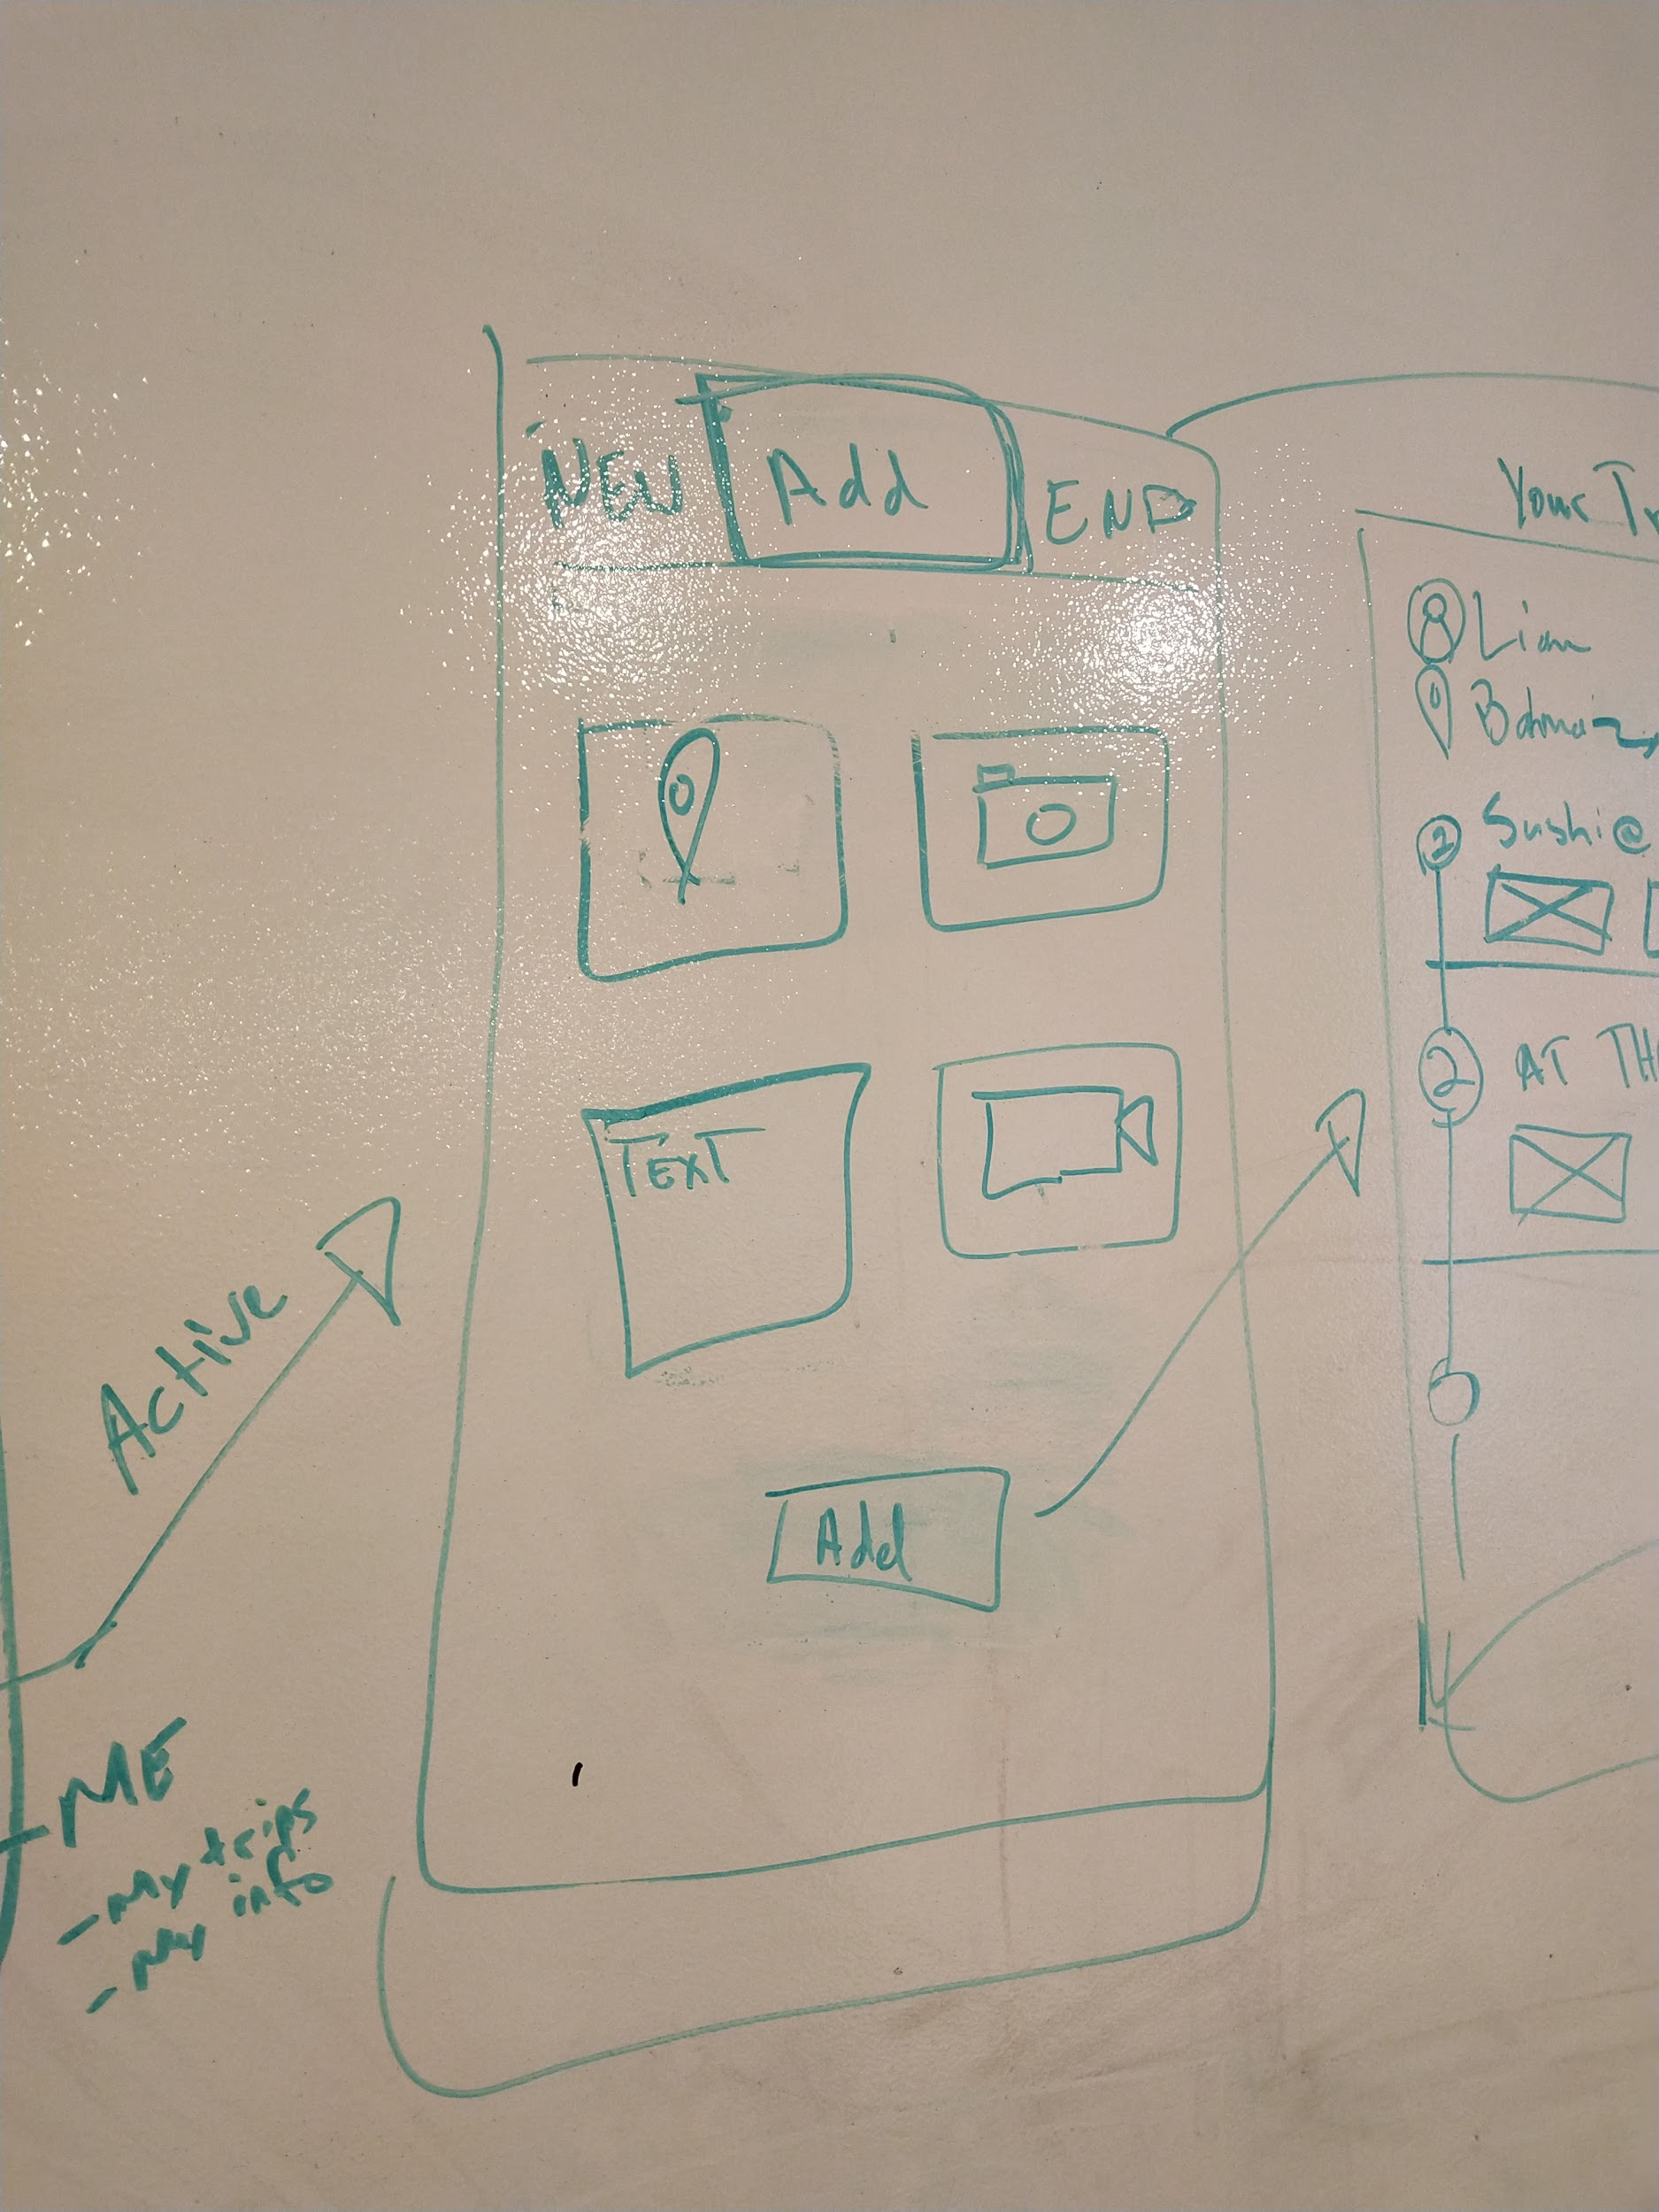 NEW Add END
TEXT
Add
Active
ME
- My trips
- My info
Your Tr
Liam
Sushi @
2 AT TH